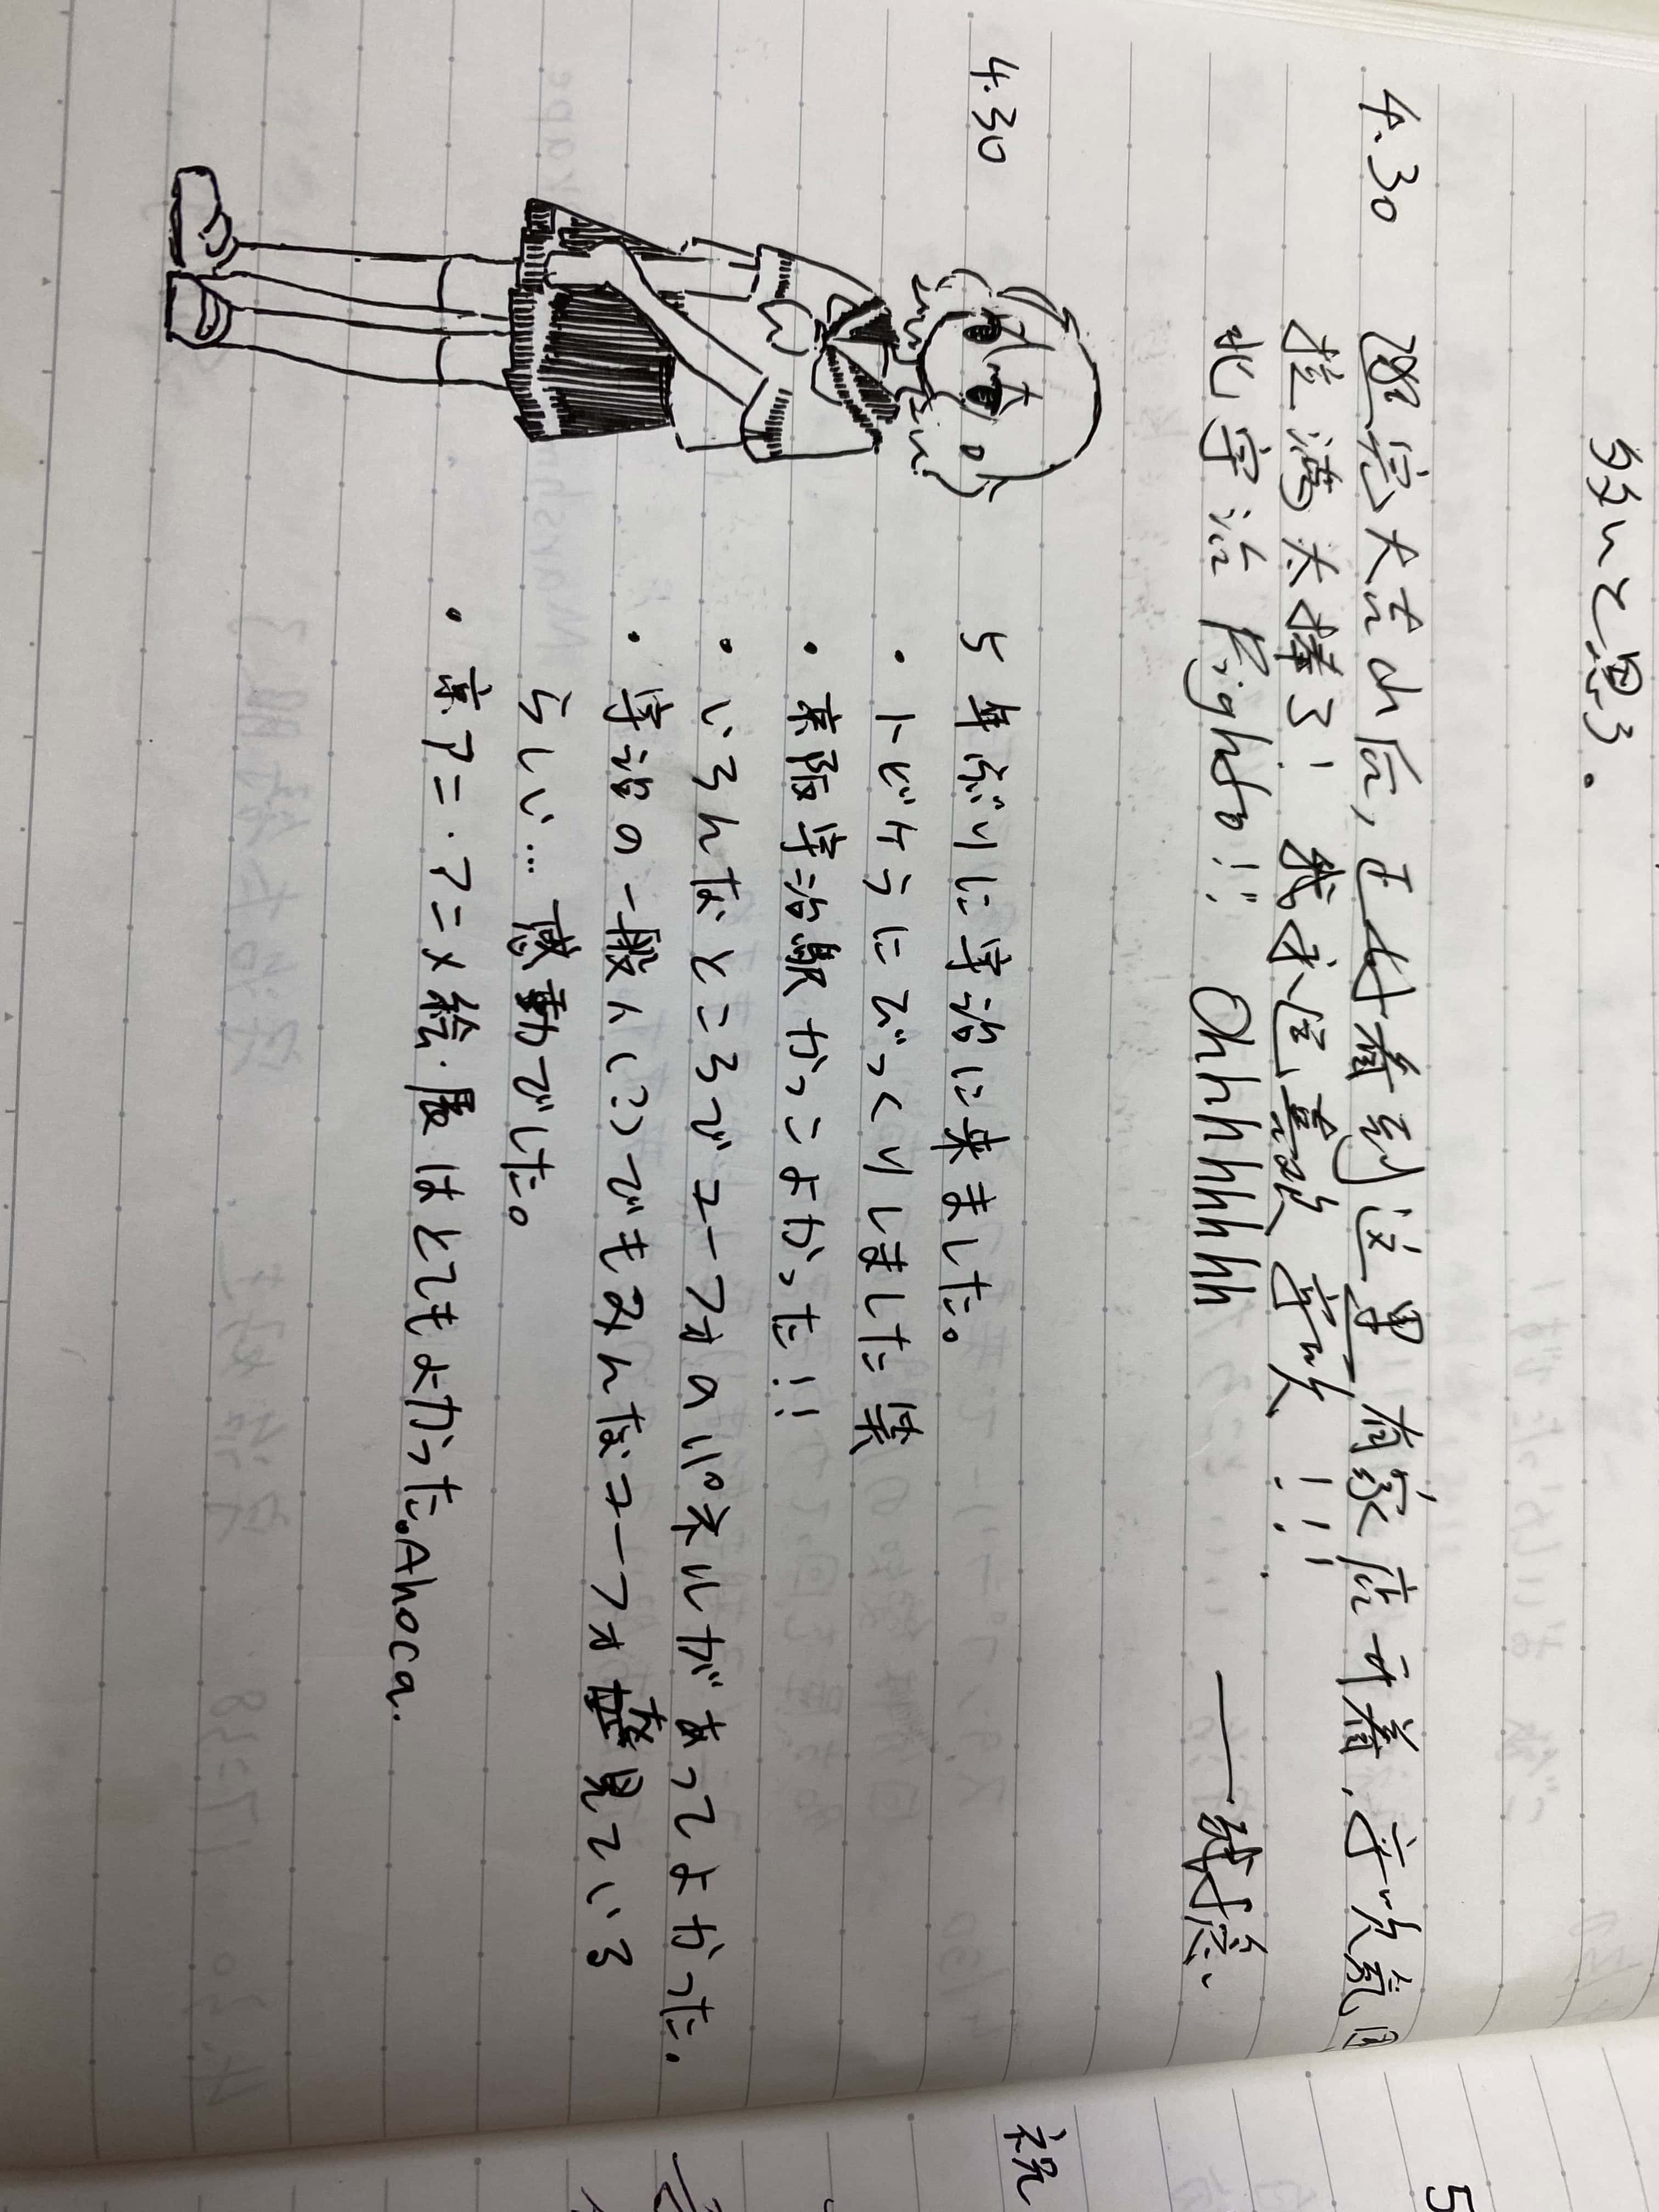 多いと思う。
4.30 逛完大吉山后，正好看到这里有家店开着，宇吹氛围
拉满太棒了！我永远喜欢宇吹！！！
北宇治 Fighto!! Ohhhhhhhh ——残稳
4.30 5年ぶりに宇治に来ました。
・トビケラにびっくりしました笑
・京阪宇治駅かっこよかった!!
・いろんなところでユーフォのパネルがあってよかった。
・宇治の一般人(?)でもみんなユーフォを見ている
らしい… 感動でした。
・京アニ・アニメ絵・展はとてもよかった。Ahoca.
5
祝